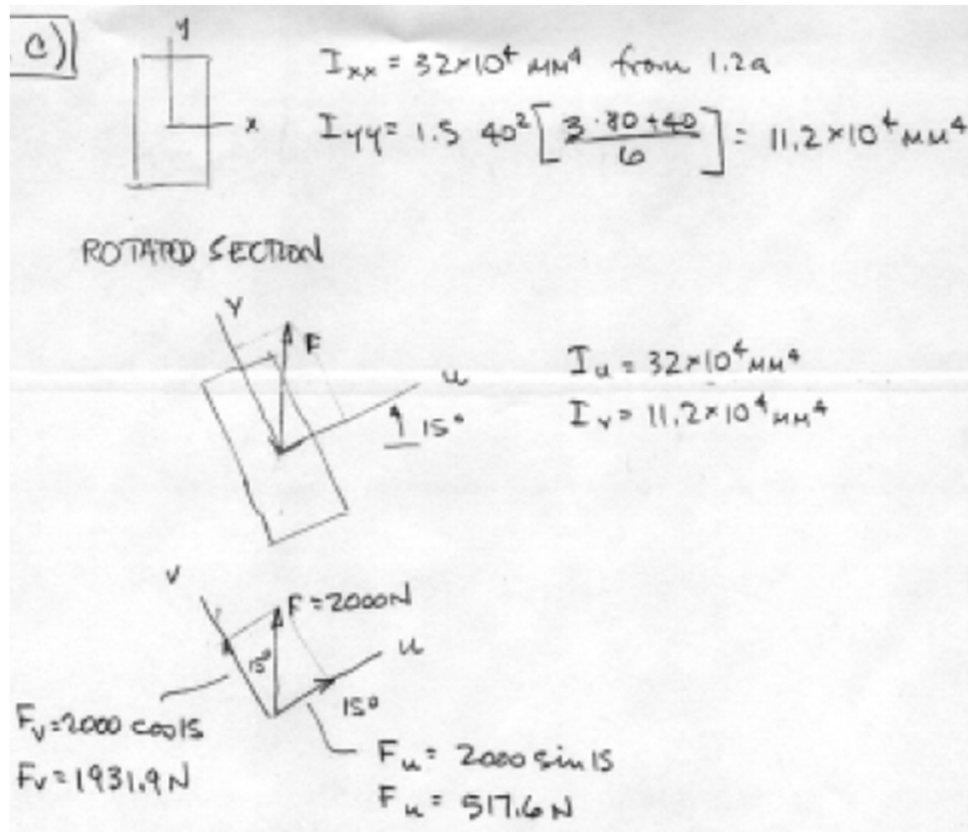 c)
y
I_xx = 32×10⁴ mm⁴ from 1.2a
x
I_yy = 1.5 40² [3·80+40 / 6] = 11.2×10⁴ mm⁴
ROTATED SECTION
v
F
u
15°
I_u = 32×10⁴ mm⁴
I_v = 11.2×10⁴ mm⁴
v
F=2000N
u
15°
15°
F_v=2000 cos15
F_v=1931.9N
F_u= 2000 sin15
F_u= 517.6N